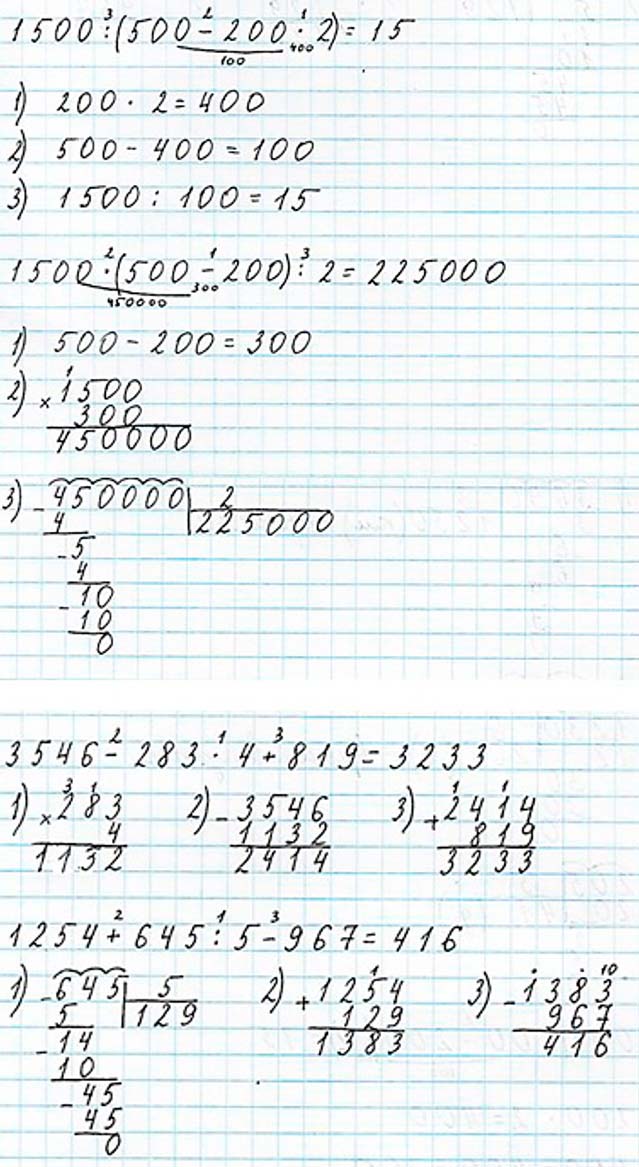 1500 : (500 - 200 · 2) = 15
3 2 1
400
100
1) 200 · 2 = 400
2) 500 - 400 = 100
3) 1500 : 100 = 15
1500 · (500 - 200) : 2 = 225000
2 1 3
300
450000
1) 500 - 200 = 300
2) × 1500
1
300
450000
3) - 450000 | 2
4 | 225000
- 5
4
- 10
10
0
3546 - 283 · 4 + 819 = 3233
2 1 3
1) × 283 2) - 3546 3) + 2414
3 1 1 1
4 1132 819
1132 2414 3233
1254 + 645 : 5 - 967 = 416
2 1 3
1) - 645 | 5 2) + 1254 3) - 1383
1 10
5 | 129 129 967
- 14 1383 416
10
- 45
45
0